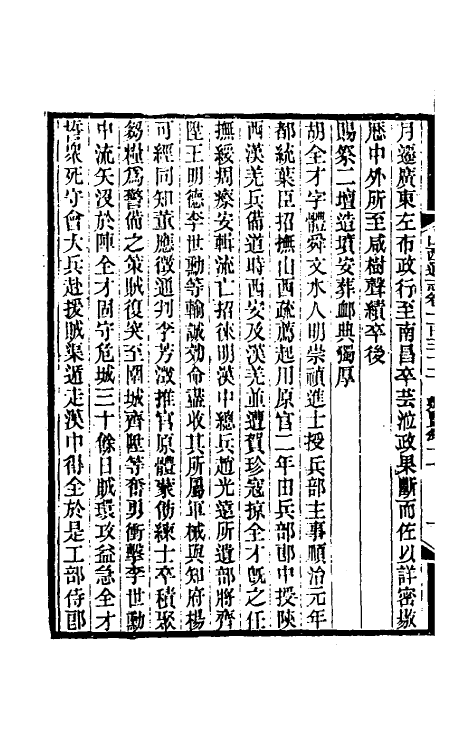 月遷廣東左布政行至南昌卒芸涖政果斷而佐以詳密敭
歷中外所至咸樹聲績卒後
賜祭二壇造墳安葬卹典獨厚
胡全才字體舜文水人明崇禎進士授兵部主事順治元年
都統葉臣招撫山西疏薦起川原官二年由兵部郎中授陝
西漢羌兵備道時西安及漢羌並遭賀珍寇掠全才旣之任
撫綏痌瘝安輯流亡招徠明漢中總兵趙光遠所遺部將齊
陞王明德李世勳等輸誠効命盡收其所屬軍械與知府楊
可經同知董應徵通判李芳澂推官原體蒙傷練士卒積聚
芻糧爲警備之策賊復突至闔城齊陞等奮勇衝擊李世勳
中流矢沒於陣全才固守危城三十餘日賊環攻益急全才
誓眾死守會大兵赴援賊渠遁走漢中得全於是工部侍郎
山西通志卷一百三十二